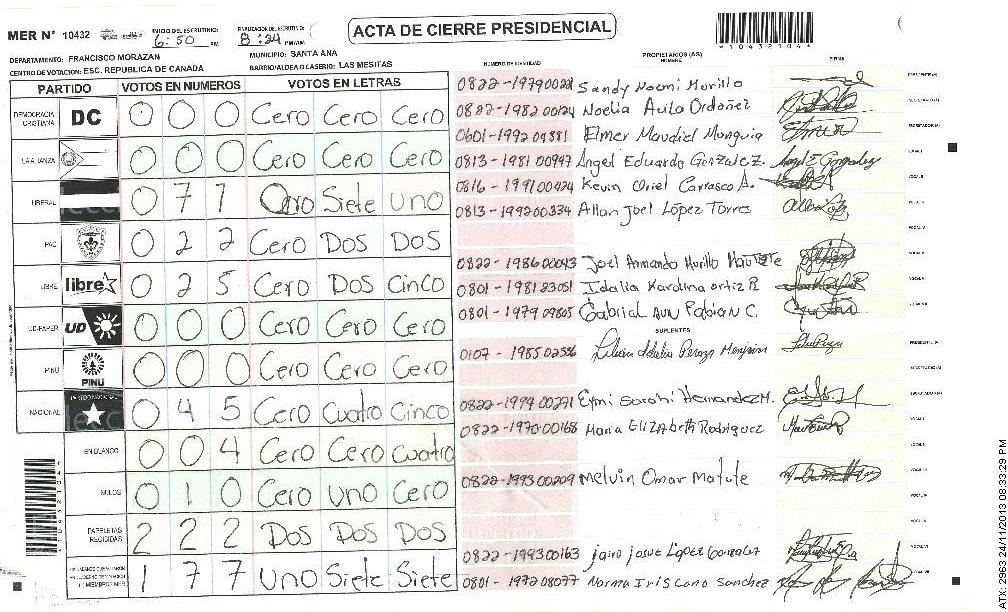 MER N° 10432 INICIO DEL ESCRUTINIO: 6:50 AM FINALIZACION DEL ESCRUTINIO: 8:24 PM/AM
ACTA DE CIERRE PRESIDENCIAL
*10432104*
DEPARTAMENTO: FRANCISCO MORAZAN MUNICIPIO: SANTA ANA
CENTRO DE VOTACION: ESC. REPUBLICA DE CANADA BARRIO/ALDEA O CASERIO: LAS MESITAS
NUMERO DE IDENTIDAD PROPIETARIOS (AS) NOMBRE FIRMA
PARTIDO VOTOS EN NUMEROS VOTOS EN LETRAS
DEMOCRACIA CRISTIANA DC 0 0 0 Cero Cero Cero
LA ALIANZA 0 0 0 Cero Cero Cero
LIBERAL 0 7 1 Cero Siete uno
PAC 0 2 2 Cero Dos Dos
LIBRE libre 0 2 5 Cero Dos Cinco
UD-FAPER UD 0 0 0 Cero Cero Cero
PINU PINU 0 0 0 Cero Cero Cero
NACIONAL PARTIDO NACIONAL 0 4 5 Cero Cuatro Cinco
EN BLANCO 0 0 4 Cero Cero Cuatro
NULOS 0 1 0 Cero uno Cero
PAPELETAS RECIBIDAS 2 2 2 Dos Dos Dos
1 7 7 Uno Siete Siete
0822-1979 Sandy Noemi Murillo
0822-1982 00124 Noelia Avila Ordoñez
0601-1992 09881 Elmer Maudiel Munguia
0813-1981 00947 Angel Eduardo Gonzalez.
0816-1991 00424 Kevin Oriel Carrasco A.
0813-1992 00334 Allan Joel López Torres
0822-1986 00043 Joel Armando Murillo
0801-1981 23051 Idalia Karolina ortiz R
0801-1979 09805 Gabrial Fabian C.
SUPLENTES
0107-1985 02586
0822-1994 00271 Eymi Sarahi Hernandez M.
0822-1970 00168 Maria Elizabeth Rodriguez
0822-1993 00209 Melvin Omar Matute
0822-1993 00163 jairo josue Lopez Gonzalez
0801-1972 08077 Norma Iris Cano Sanchez
ATX: 2963 24/11/2013 08:33:29 PM